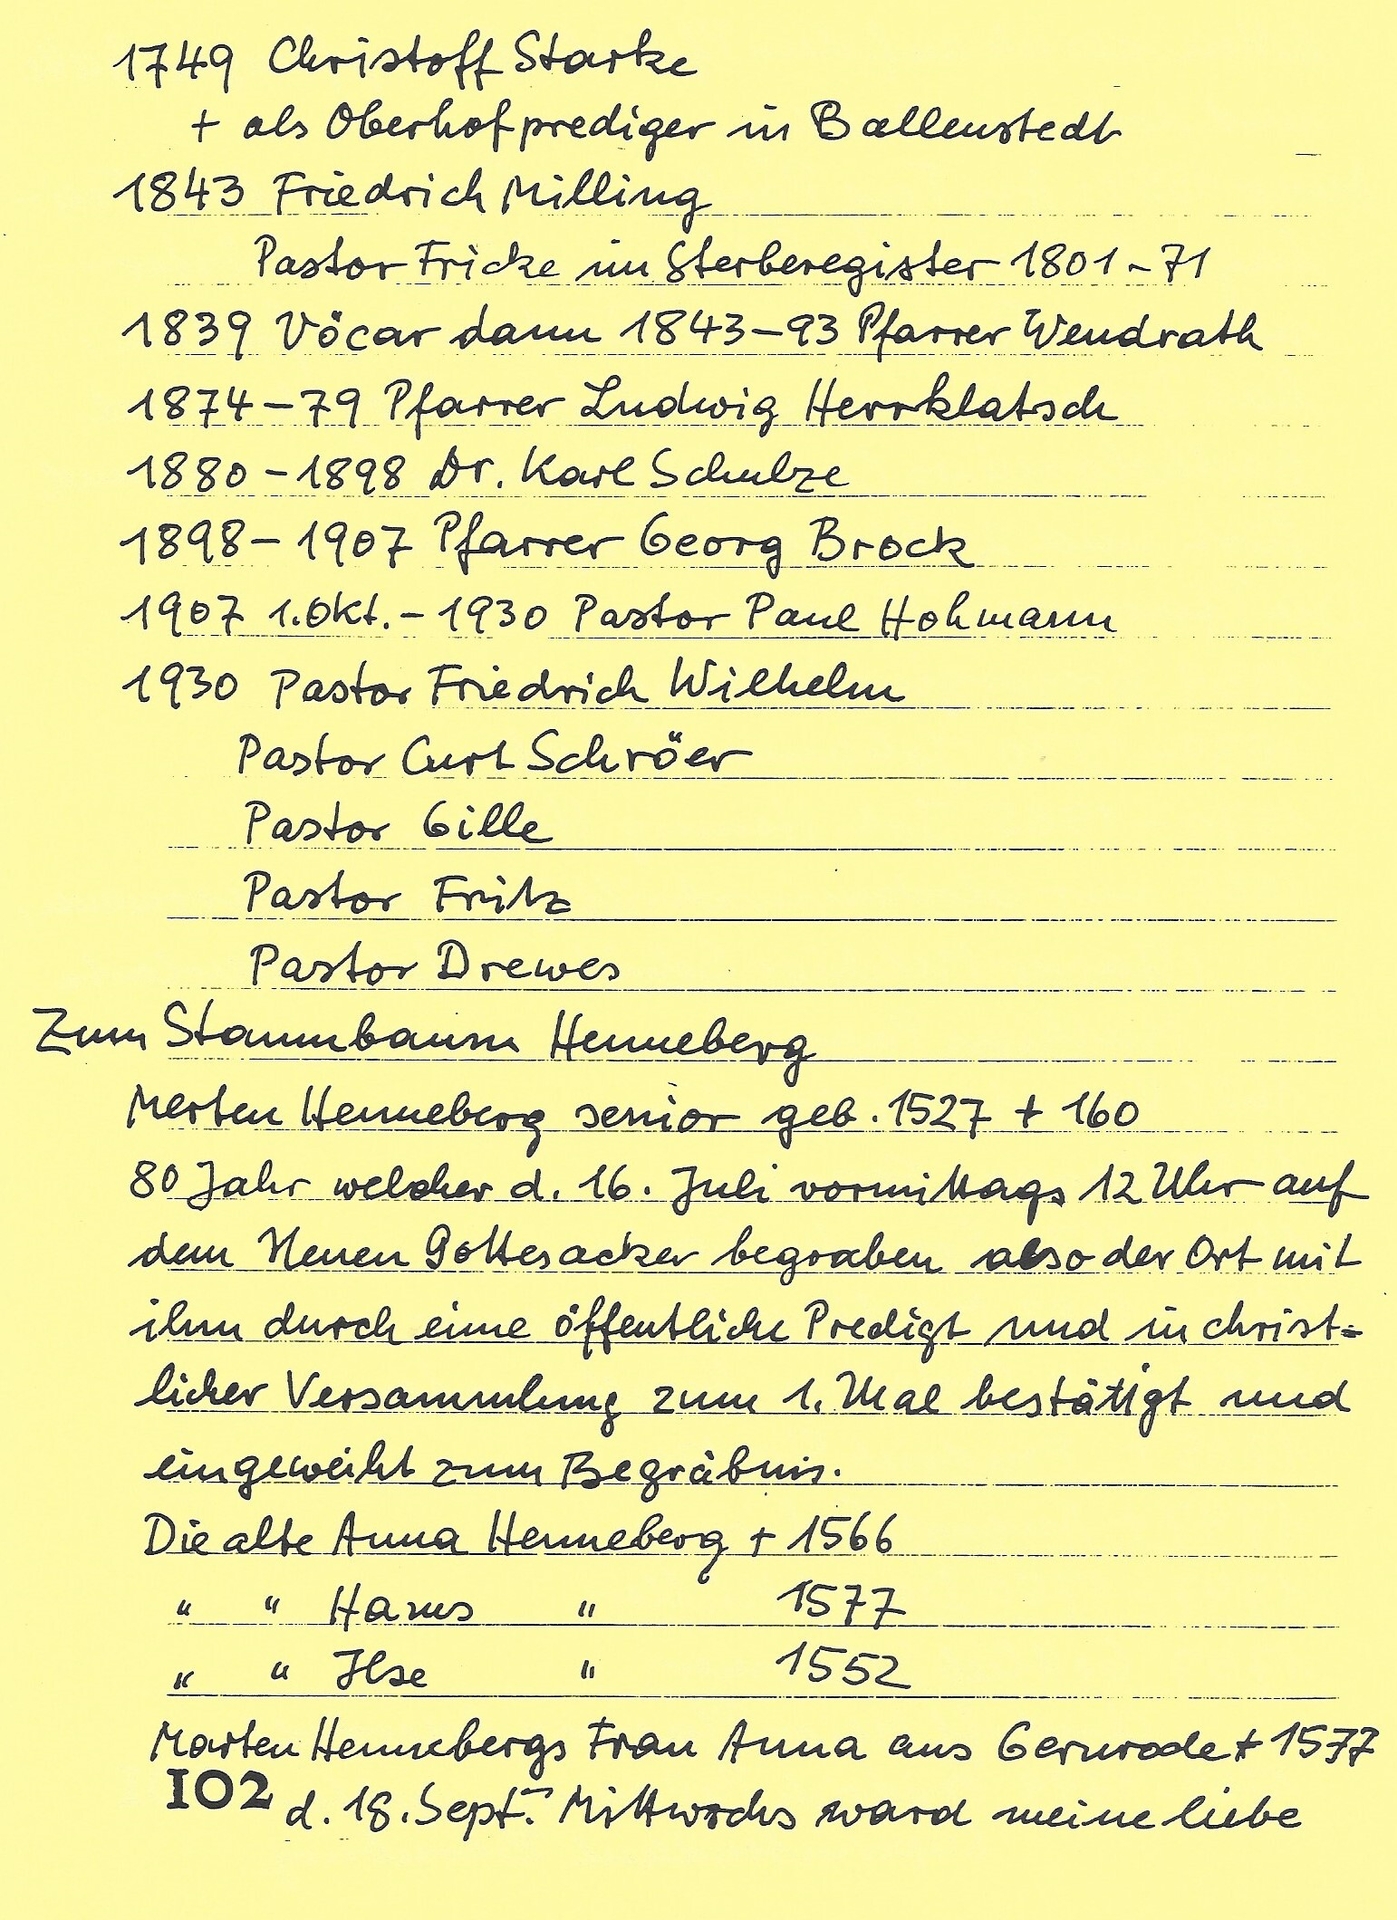 1749 Christoff Starke
+ als Oberhofprediger in Ballenstedt
1843 Friedrich Milling
Pastor Fricke im Sterberegister 1801-71
1839 Vöcar dann 1843-93 Pfarrer Wendrath
1874-79 Pfarrer Ludwig Herrklatsch
1880-1898 Dr. Karl Schulze
1898-1907 Pfarrer Georg Brock
1907 1.Okt.-1930 Pastor Paul Hohmann
1930 Pastor Friedrich Wilhelm
Pastor Curt Schröer
Pastor Gille
Pastor Fritz
Pastor Drewes
Zum Stammbaum Henneberg
Merten Henneberg senior geb. 1527 + 160
80 Jahr welcher d. 16. Juli vormittags 12 Uhr auf
dem Neuen Gottesacker begraben also der Ort mit
ihm durch eine öffentliche Predigt und in christ=
licher Versammlung zum 1. Mal bestätigt und
eingeweiht zum Begräbnis.
Die alte Anna Henneberg + 1566
" " Hans " 1577
" " Ilse " 1552
Marten Hennebergs Frau Anna aus Gernrode + 1577
102 d. 18. Sept. Mittwochs ward meine liebe